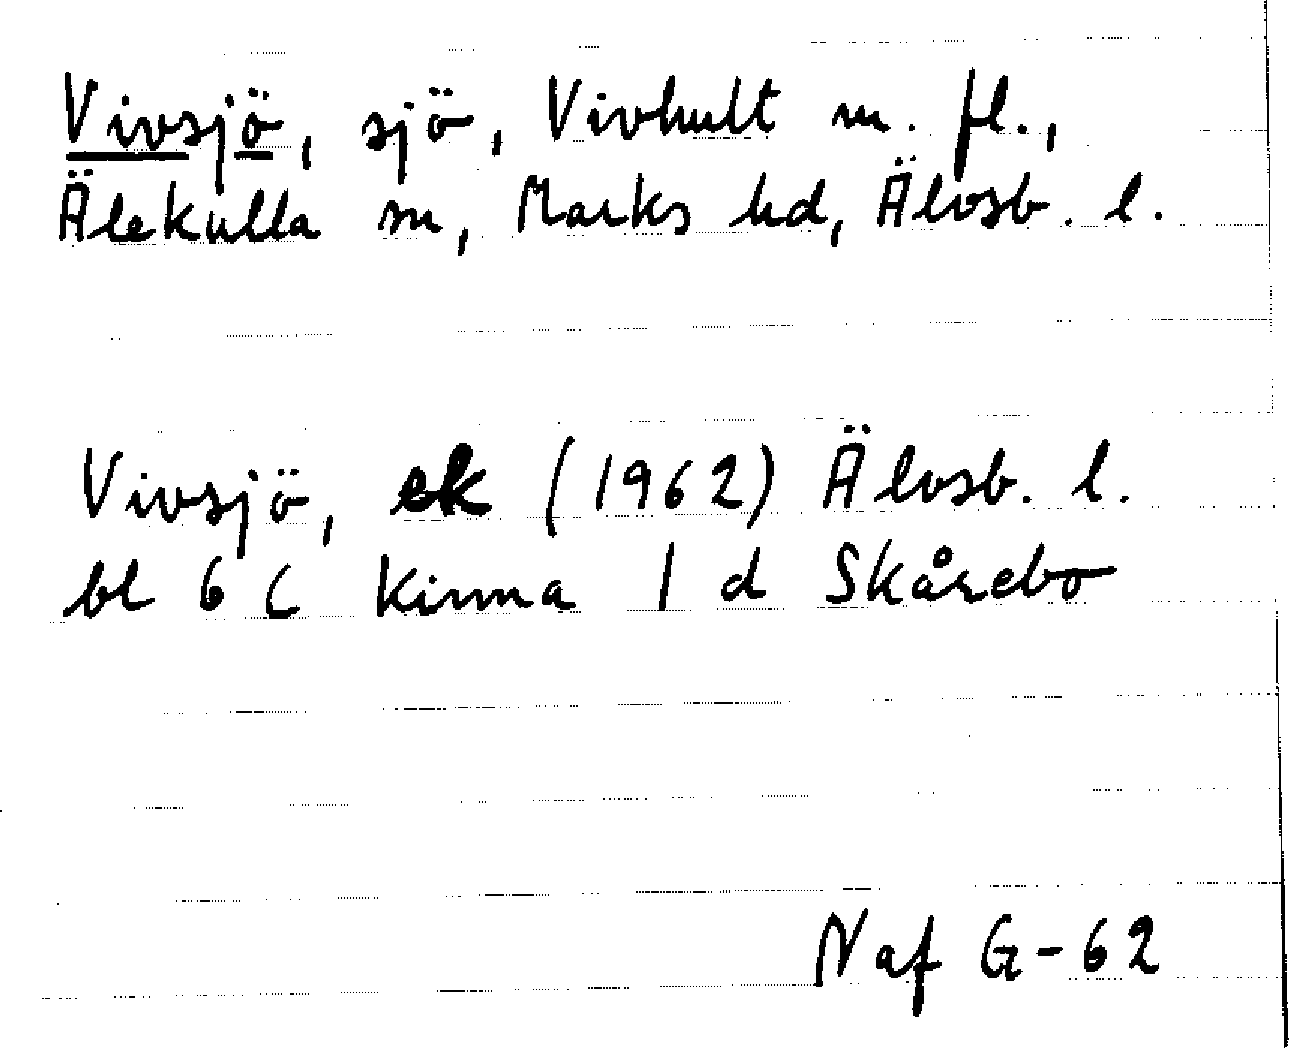 Vivsjö, sjö, Vivhult m. fl.,
Älekulla sn, Marks hd, Älvsb. l.
Vivsjö, ek (1962) Älvsb. l.
bl 6 C Kinna 1 d Skårebo
Naf G-62